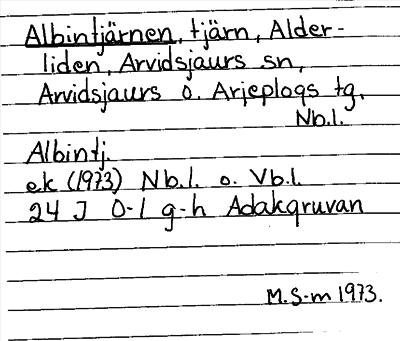 Albintjärnen, tjärn, Alder-
liden, Arvidsjaurs sn,
Arvidsjaurs o. Arjeplogs tg.
Nb.l.
Albintj.
ek (1973) Nb.l. o. Vb.l.
24 J 0-1 g-h Adakgruvan
M.S-m 1973.